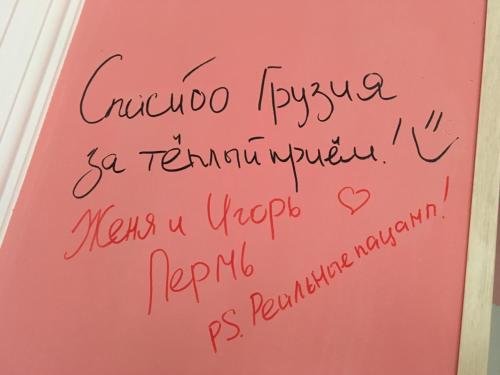 Спасибо Грузия
за тёплый приём!
Женя и Игорь
Пермь
PS. Реальные пацаны!